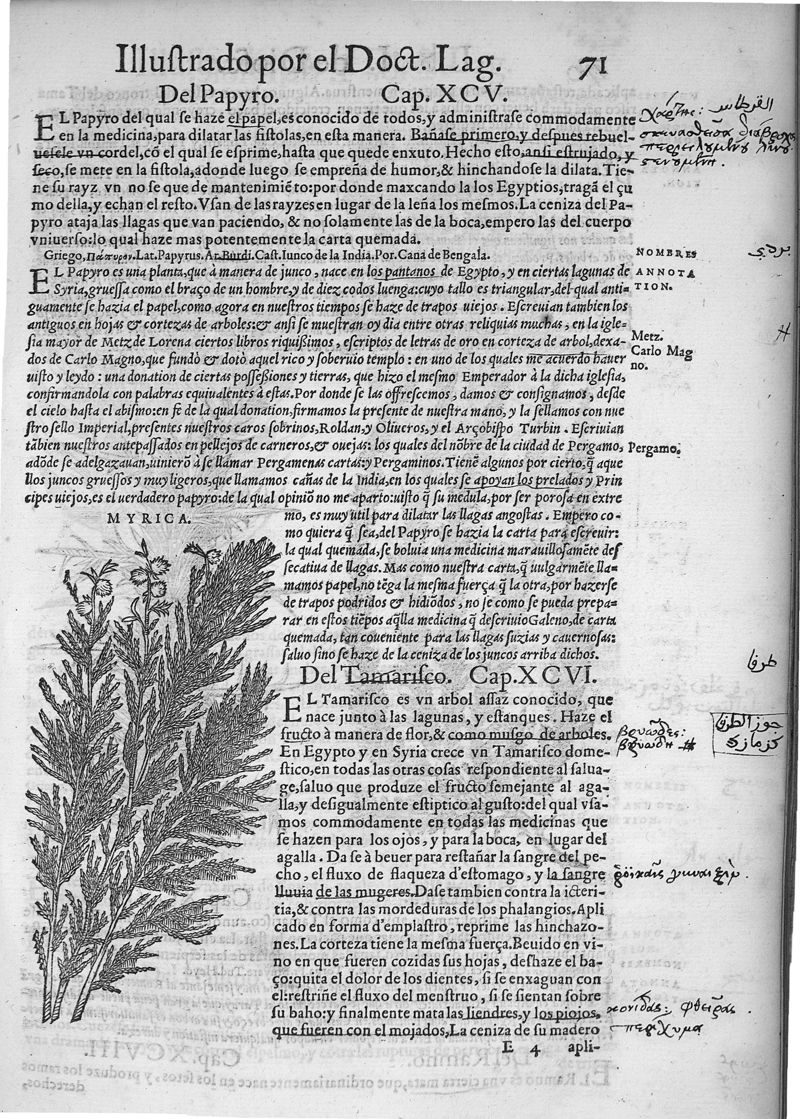 Illustrado por el Doct. Lag. 71
Del Papyro. Cap. XCV.
EL Papyro del qual se haze el papel, es conocido de todos, y administrase commodamente
en la medicina, para dilatar las fistolas, en esta manera. Bañase primero, y despues rebuel-
uesele vn cordel, cõ el qual se esprime, hasta que quede enxuto. Hecho esto, ansi estrujado, y
seco, se mete en la fistola, adonde luego se empreña de humor, & hinchandose la dilata. Tie-
ne su rayz vn no se que de mantenimiẽto: por donde maxcando la los Egyptios, tragã el çu
mo della, y echan el resto. Vsan de las rayzes en lugar de la leña los mesmos. La ceniza del Pa-
pyro ataja las llagas que van paciendo, & no solamente las de la boca, empero las del cuerpo
vniuerso: lo qual haze mas potentemente la carta quemada.
Griego, Πάπυρος. Lat. Papyrus. Ar. Burdi. Cast. Iunco de la India. Por. Cana de Bengala.
NOMBRES
بردي
EL Papyro es una planta, que à manera de junco, nace en los pantanos de Egypto, y en ciertas lagunas de
ANNOTA
Syria, gruessa como el braço de un hombre, y de diez codos luenga: cuyo tallo es triangular, del qual anti-
TION.
guamente se hazia el papel, como agora en nuestros tiempos se haze de trapos uiejos. Escreuian tambien los
antiguos en hojas & cortezas de arboles: & ansi se muestran oy dia entre otras reliquias muchas, en la igle-
sia mayor de Metz de Lorena ciertos libros riquißimos, escriptos de letras de oro en corteza de arbol, dexa-
Metz.
dos de Carlo Magno, que fundò & dotò aquel rico y soberuio templo: en uno de los quales me acuerdo hauer
Carlo Mag
no.
uisto y leydo: una donation de ciertas poßeßiones y tierras, que hizo el mesmo Emperador à la dicha iglesia,
confirmandola con palabras equiualentes à estas. Por donde se las offrescemos, damos & consignamos, desde
el cielo hasta el abismo: en fè de la qual donation, firmamos la presente de nuestra mano, y la sellamos con nue
stro sello Imperial, presentes nuestros caros sobrinos, Roldan, y Oliueros, y el Arçobispo Turbin. Escriuian
tãbien nuestros antepassados en pellejos de carneros, & ouejas: los quales del nõbre de la ciudad de Pergamo,
Pergamo.
adõde se adelgazauan, uinierõ à se llamar Pergamenas cartas: y Pergaminos. Tienẽ algunos por cierto, q̃ aque
llos juncos gruessos y muy ligeros, que llamamos cañas de la India, en los quales se apoyan los prelados y Prin
cipes uiejos, es el uerdadero papyro: de la qual opiniõ no me aparto: uisto q̃ su medula, por ser porosa en extre
mo, es muy util para dilatar las llagas angostas. Empero co-
mo quiera q̃ sea, del Papyro se hazia la carta para escreuir:
la qual quemada, se boluia una medicina marauillosamẽte des
secatiua de llagas. Mas como nuestra carta, q̃ uulgarmẽte lla-
mamos papel, no tẽga la mesma fuerça q̃ la otra, por hazerse
de trapos podridos & hidiõdos, no se como se pueda prepa-
rar en estos tiẽpos aq̃lla medicina q̃ descriuio Galeno, de carta
quemada, tan coueniente para las llagas suzias y cauernosas:
saluo sino se haze de la ceniza de los juncos arriba dichos.
MYRICA.
Del Tamarisco. Cap. XCVI.
EL Tamarisco es vn arbol assaz conocido, que
nace junto à las lagunas, y estanques. Haze el
fructo à manera de flor, & como musgo de arboles.
En Egypto y en Syria crece vn Tamarisco dome-
stico, en todas las otras cosas respondiente al salua-
ge, saluo que produze el fructo semejante al aga-
lla, y desigualmente estiptico al gusto: del qual vsa-
mos commodamente en todas las medicinas que
se hazen para los ojos, y para la boca, en lugar del
agalla. Da se à beuer para restañar la sangre del pe-
cho, el fluxo de flaqueza d'estomago, y la sangre
lluuia de las mugeres. Dase tambien contra la icteri-
tia, & contra las mordeduras de los phalangios. Apli
cado en forma d'emplastro, reprime las hinchazo-
nes. La corteza tiene la mesma fuerça. Beuido en vi-
no en que fueren cozidas sus hojas, deshaze el ba-
ço: quita el dolor de los dientes, si se enxaguan con
el: restriñe el fluxo del menstruo, si se sientan sobre
su baho: y finalmente mata las liendres, y los piojos,
que fueren con el mojados, La ceniza de su madero
E 4 apli-
χάρτης: القرطاس
طرفا
جوز الطرفا
كزمازك
βρυῶδες:
κονίδας: φθεῖρας